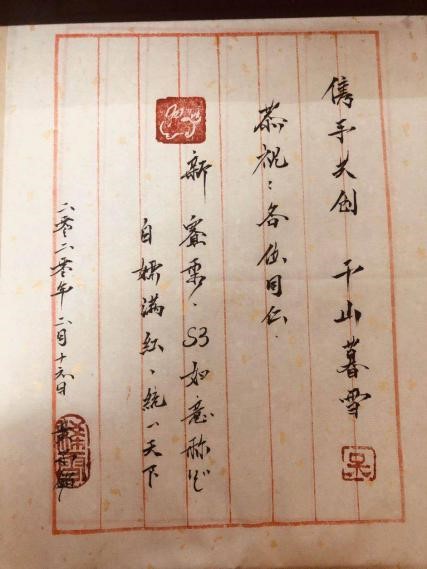 携手共创 千山暮雪
恭祝：各位同仁.
新赛季，S3如意称心
满红、统一天下
二零二零年二月十六日